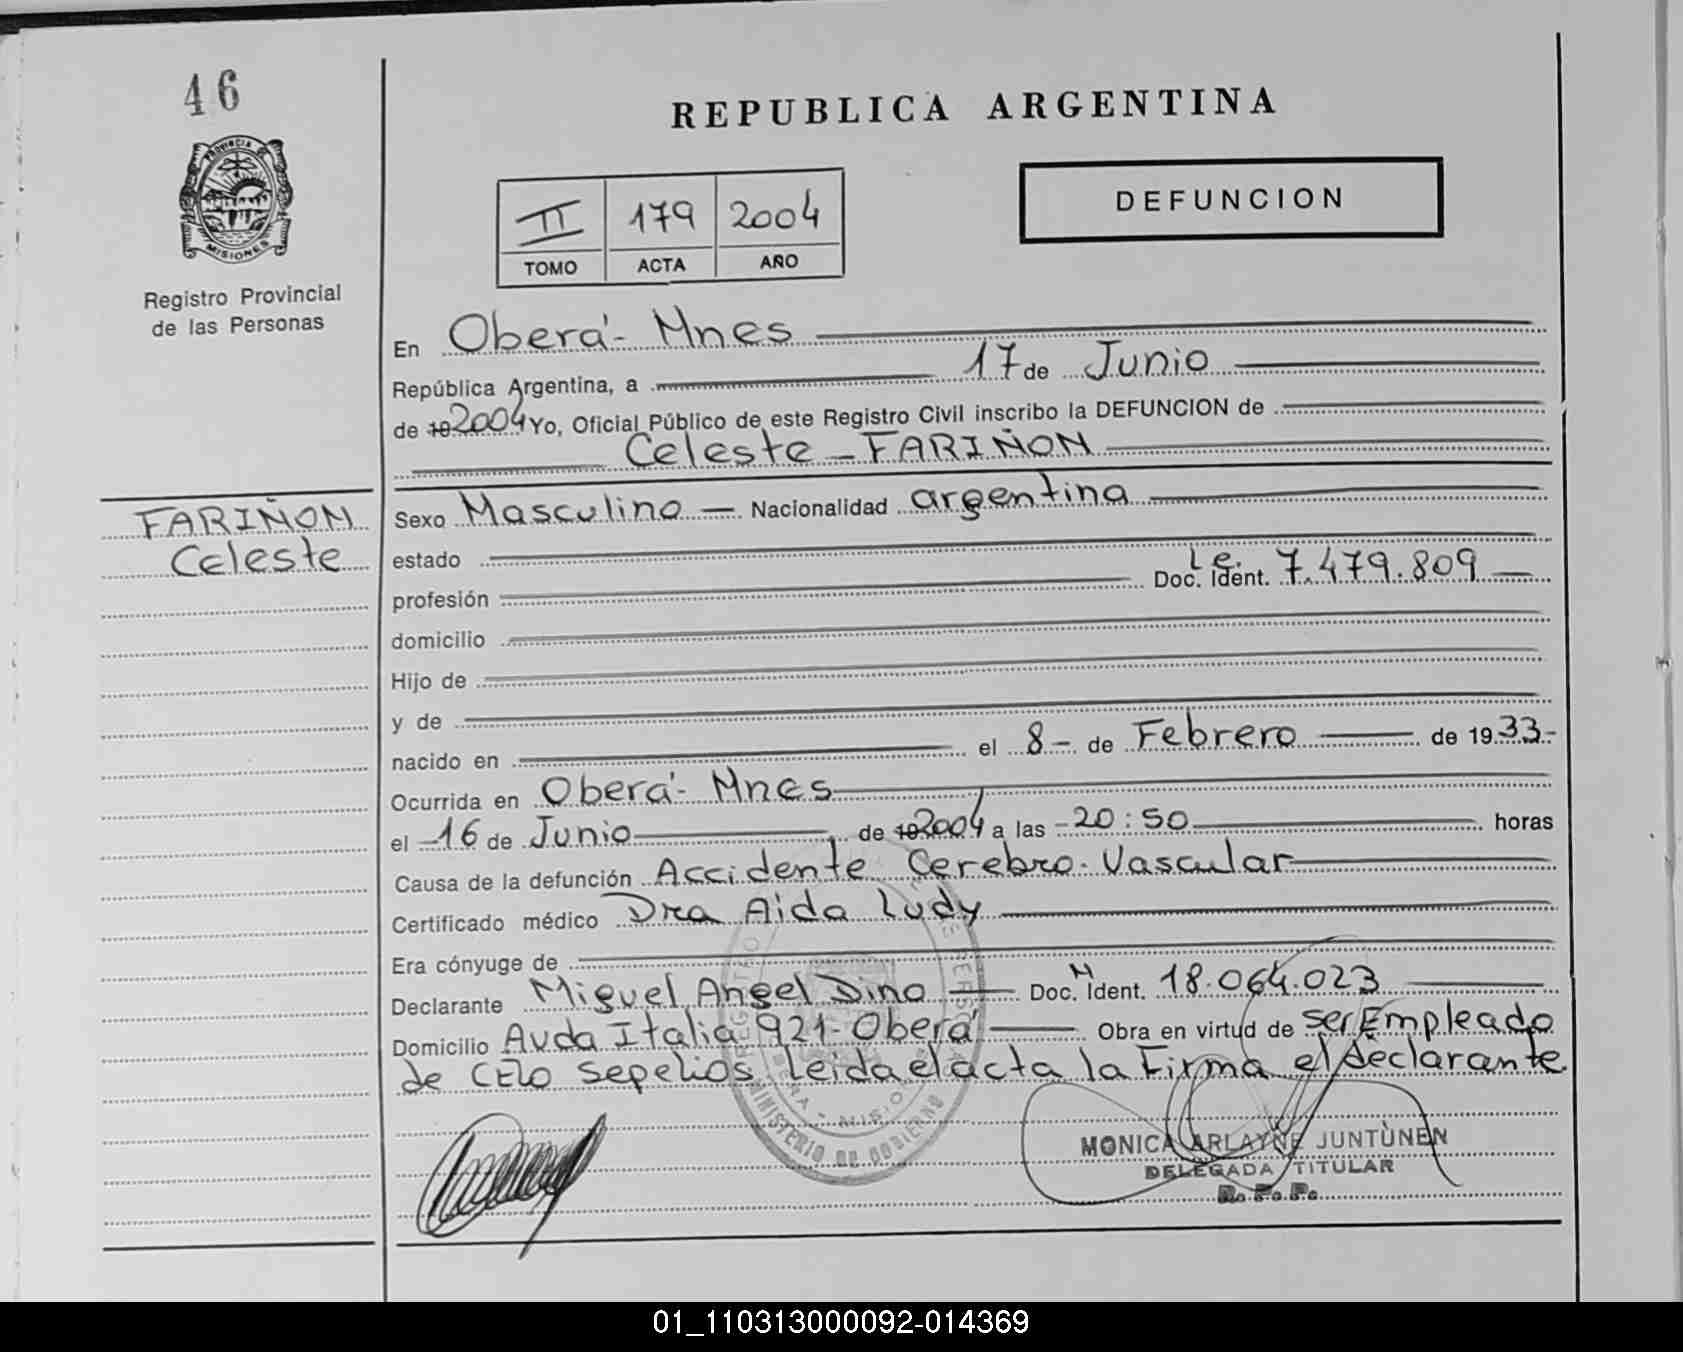 46
REPUBLICA ARGENTINA
PROVINCIA DE
MISIONES
Registro Provincial
de las Personas
II 179 2004
TOMO ACTA AÑO
DEFUNCION
En Oberá - Mnes
República Argentina, a 17 de Junio
de 19 2004 Yo, Oficial Público de este Registro Civil inscribo la DEFUNCION de
Celeste - FARIÑON
FARIÑON
Celeste
Sexo Masculino - Nacionalidad argentina
estado
profesión Doc. Ident. L e. 7.479.809
domicilio
Hijo de
y de
nacido en el 8 - de Febrero de 1933.-
Ocurrida en Oberá - Mnes
el 16 de Junio de 19 2004 a las 20:50 horas
Causa de la defunción Accidente Cerebro-Vascular
Certificado médico Dra Aida Ludy
Era cónyuge de
Declarante Miguel Angel Dino Doc. N Ident. 18.064.023
Domicilio Avda Italia 921 - Oberá Obra en virtud de ser Empleado
de CELO Sepelios. Leida el acta la Firma el declarante
MINISTERIO DE GOBIERNO
MONICA ARLAYNE JUNTUNEN
DELEGADA TITULAR
R. P. P.
01_110313000092-014369